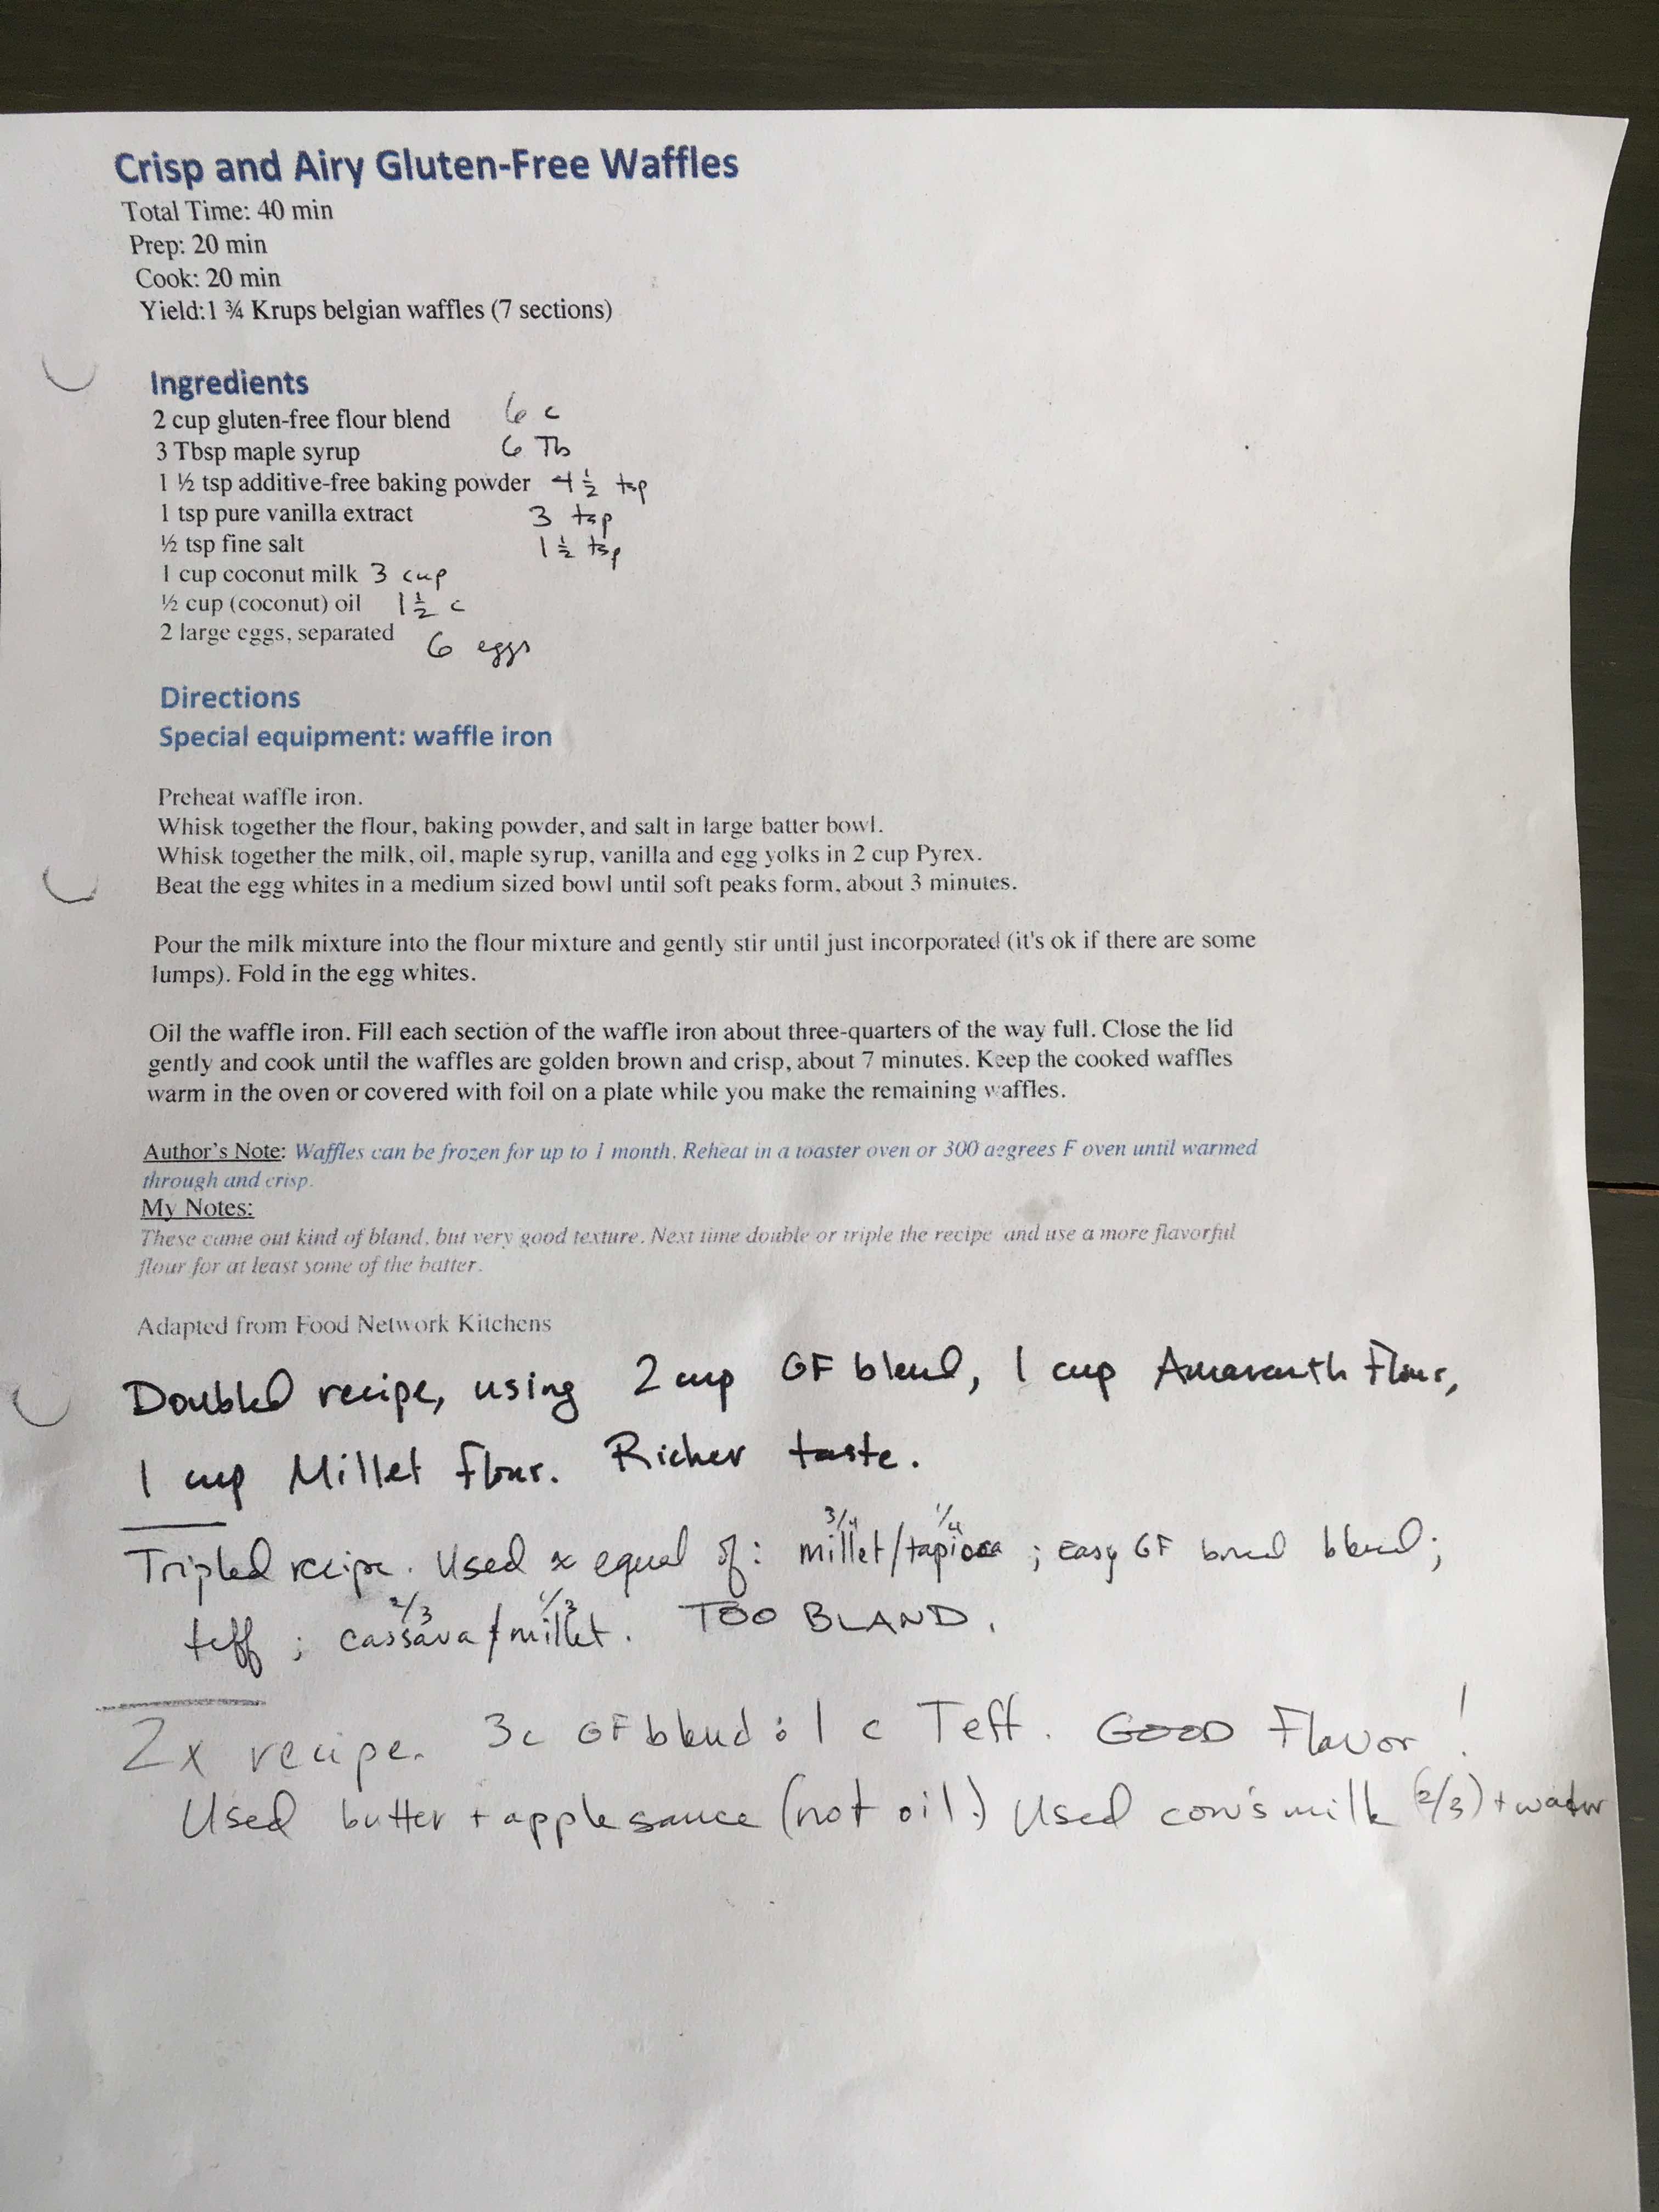 Crisp and Airy Gluten-Free Waffles
Total Time: 40 min
Prep: 20 min
Cook: 20 min
Yield:1 ¾ Krups belgian waffles (7 sections)
Ingredients
2 cup gluten-free flour blend 6 c
3 Tbsp maple syrup 6 Tb
1 ½ tsp additive-free baking powder 4 ½ tsp
1 tsp pure vanilla extract 3 tsp
½ tsp fine salt 1 ½ tsp
1 cup coconut milk 3 cup
½ cup (coconut) oil 1 ½ c
2 large eggs, separated 6 eggs
Directions
Special equipment: waffle iron
Preheat waffle iron.
Whisk together the flour, baking powder, and salt in large batter bowl.
Whisk together the milk, oil, maple syrup, vanilla and egg yolks in 2 cup Pyrex.
Beat the egg whites in a medium sized bowl until soft peaks form, about 3 minutes.
Pour the milk mixture into the flour mixture and gently stir until just incorporated (it's ok if there are some
lumps). Fold in the egg whites.
Oil the waffle iron. Fill each section of the waffle iron about three-quarters of the way full. Close the lid
gently and cook until the waffles are golden brown and crisp, about 7 minutes. Keep the cooked waffles
warm in the oven or covered with foil on a plate while you make the remaining waffles.
Author's Note: Waffles can be frozen for up to 1 month. Reheat in a toaster oven or 300 degrees F oven until warmed
through and crisp.
My Notes:
These came out kind of bland, but very good texture. Next time double or triple the recipe and use a more flavorful
flour for at least some of the batter.
Adapted from Food Network Kitchens
Doubled recipe, using 2 cup GF blend, 1 cup Amaranth flour,
1 cup Millet flour. Richer taste.
3/4 1/4
Tripled recipe. Used equal of: millet/tapioca ; easy GF bread blend;
2/3 1/3
teff ; cassava/millet. TOO BLAND.
2x recipe. 3c GF blend : 1 c Teff. GOOD Flavor!
Used butter + applesauce (not oil.) Used cow's milk (2/3) + water